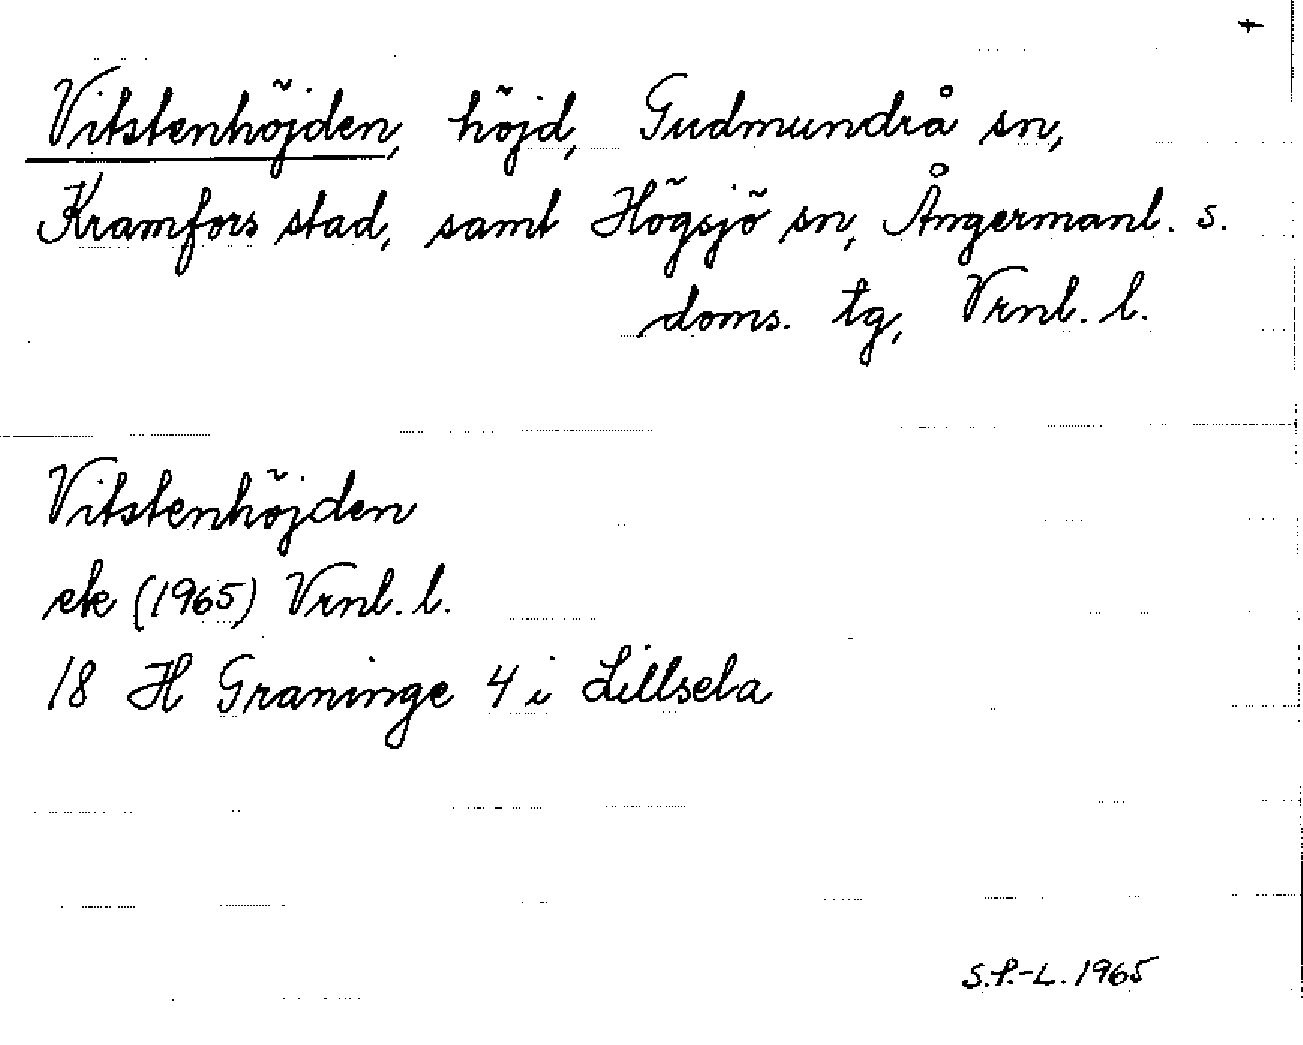 Vitstenhöjden, höjd, Gudmundrå sn,
Kramfors stad, samt Högsjö sn, Ångermanl. s.
doms. tg, Vrnl. l.
Vitstenhöjden
ek (1965) Vrnl. l.
18 H Graninge 4 i Lillsela
S.P.-L. 1965